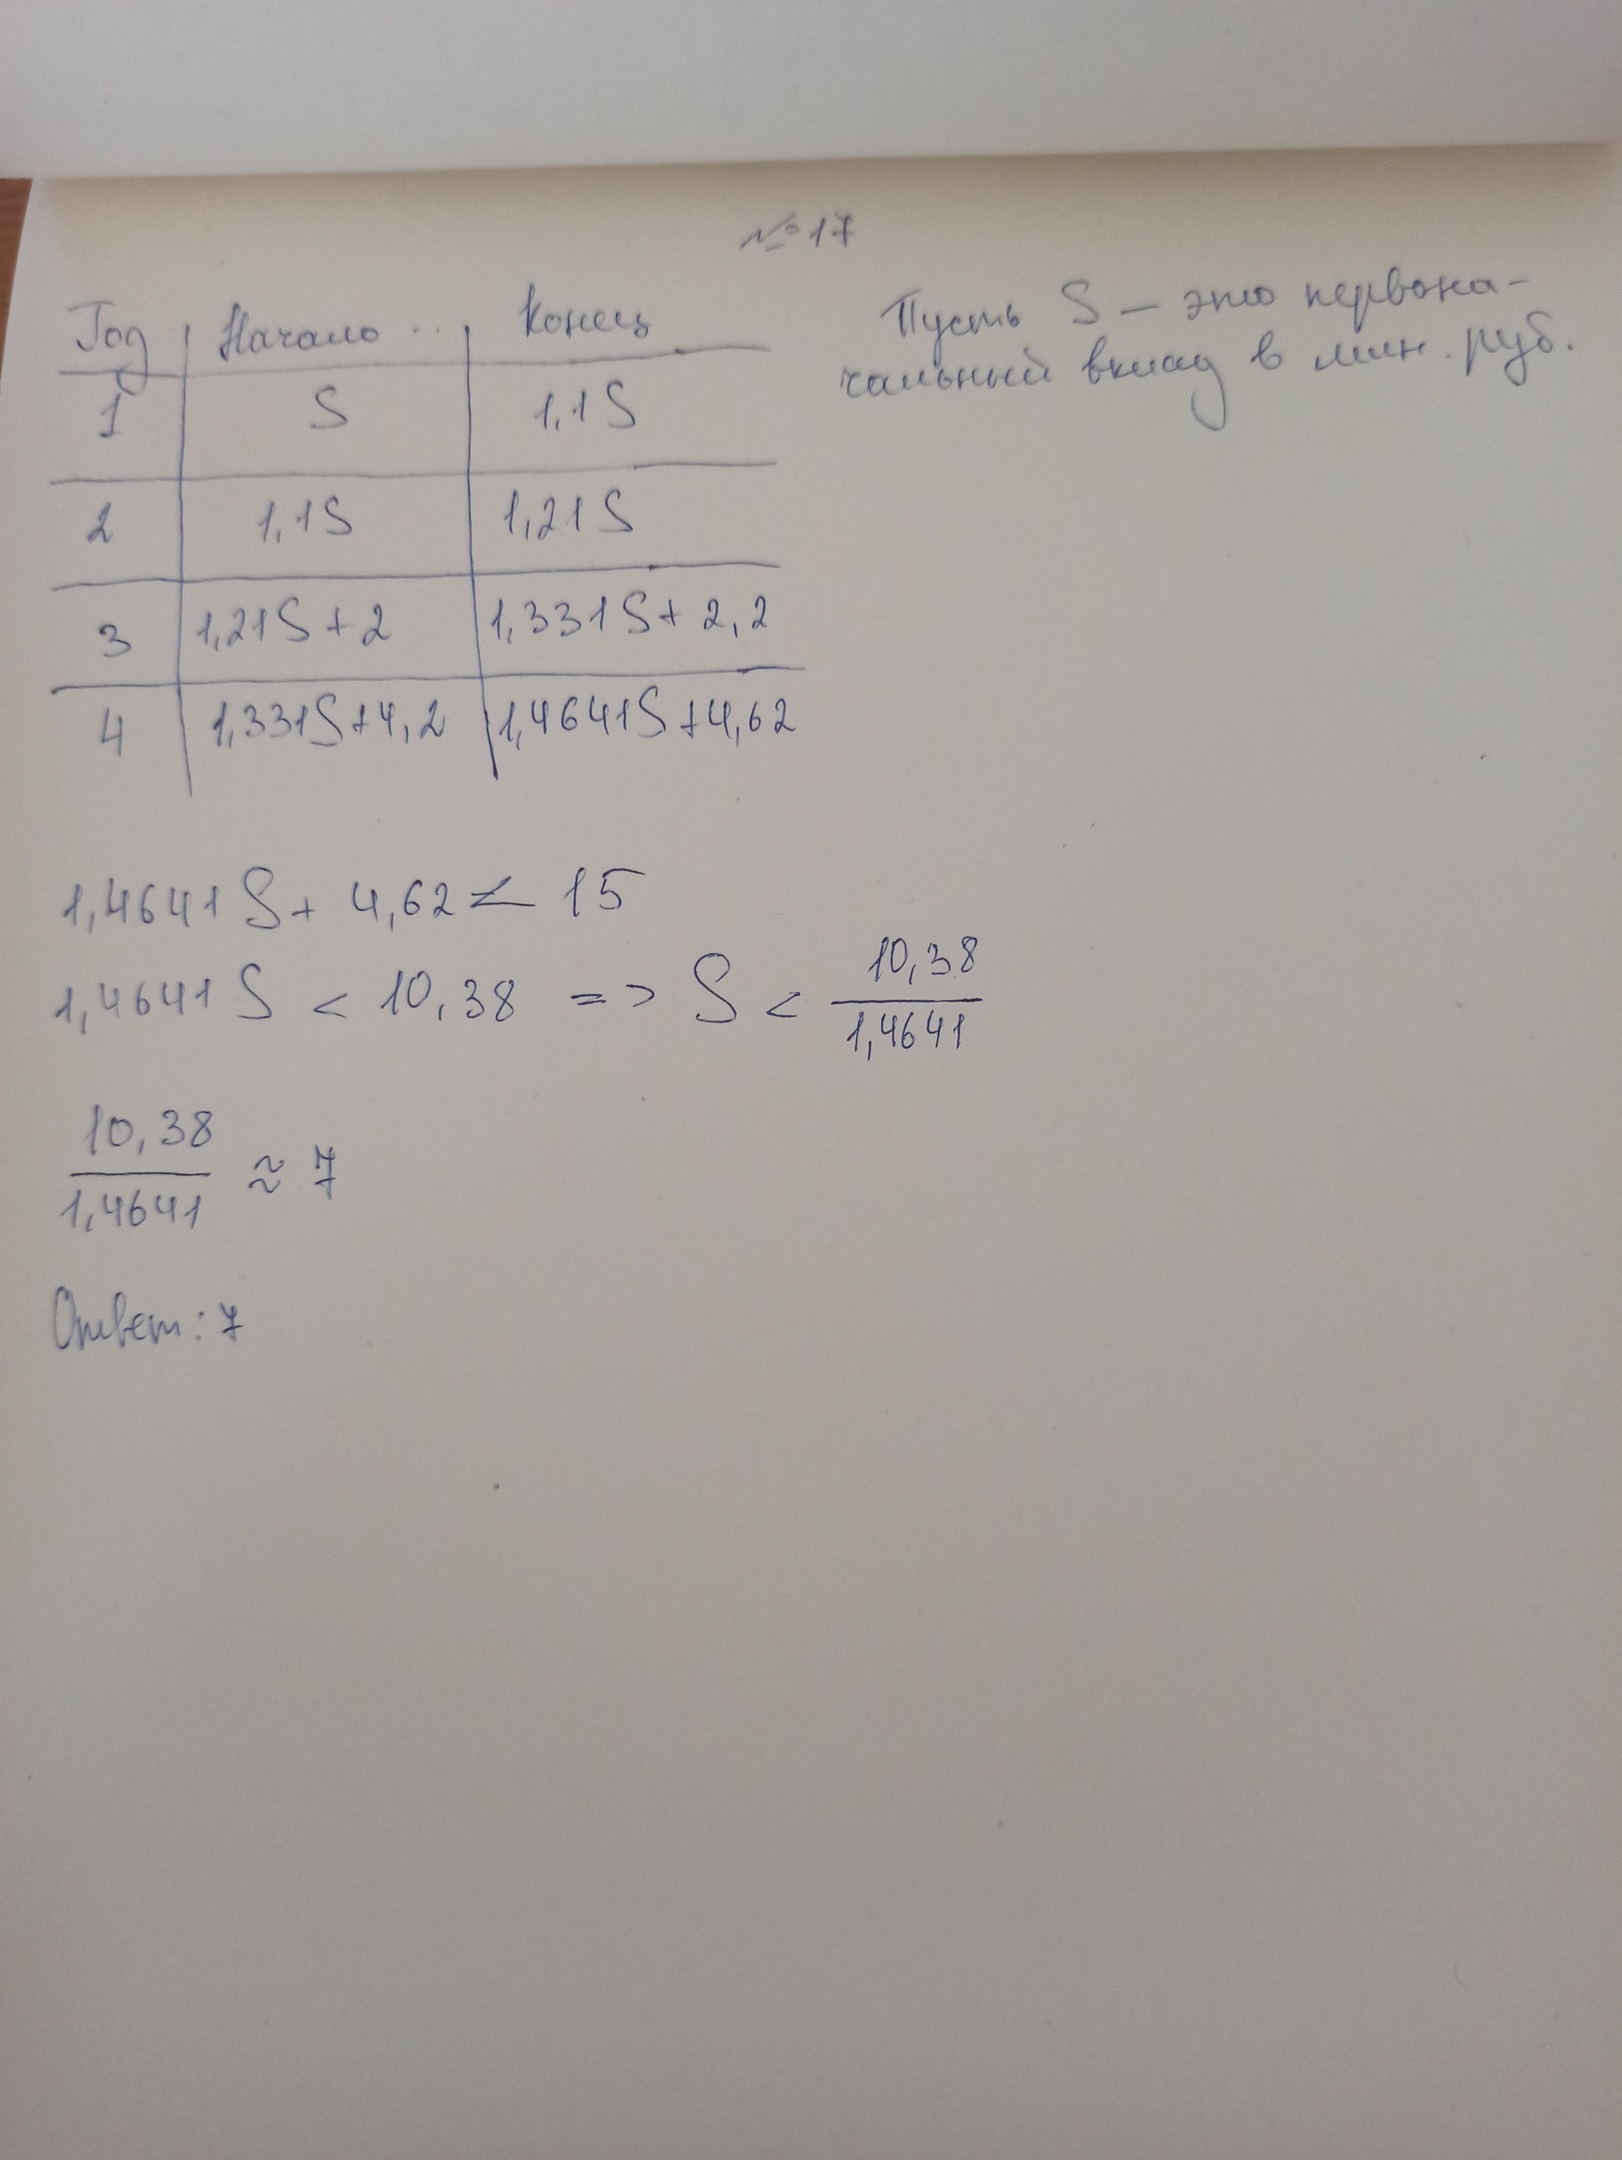 №17
Год | Начало .. | Конец
1 | S | 1,1S
2 | 1,1S | 1,21S
3 | 1,21S + 2 | 1,331S + 2,2
4 | 1,331S + 4,2 | 1,4641S + 4,62
Пусть S – это первона-
чальный вклад в млн. руб.
1,4641S + 4,62 < 15
1,4641S < 10,38 => S < 10,38/1,4641
10,38/1,4641 ≈ 7
Ответ: 7